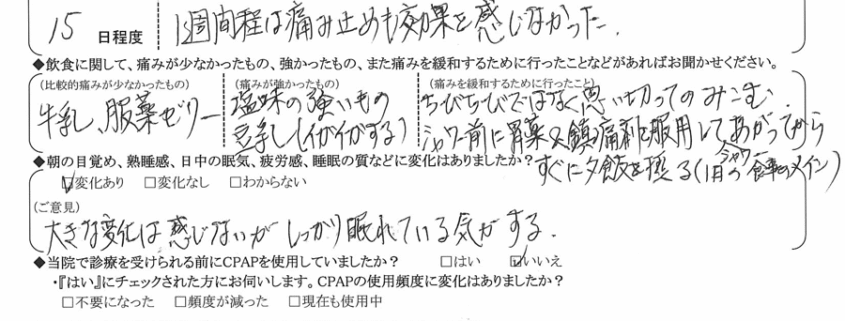 15 日程度 1週間程は痛み止めも効果を感じなかった.
◆飲食に関して、痛みが少なかったもの、強かったもの、また痛みを緩和するために行ったことなどがあればお聞かせください。
(比較的痛みが少なかったもの) (痛みが強かったもの) (痛みを緩和するために行ったこと)
牛乳、服薬ゼリー 塩味の強いもの ちびちびではなく思い切ってのみこむ.
豆乳(イガイガする) シャワー前に胃薬と鎮痛剤を服用してあがってから
◆朝の目覚め、熟睡感、日中の眠気、疲労感、睡眠の質などに変化はありましたか? すぐに夕飯を摂る(1日の食事のメイン)
☑変化あり □変化なし □わからない
(ご意見)
大きな変化は感じないがしっかり眠れている気がする.
◆当院で診療を受けられる前にCPAPを使用していましたか? □はい ☑いいえ
・『はい』にチェックされた方にお伺いします。CPAPの使用頻度に変化はありましたか?
□不要になった □頻度が減った □現在も使用中